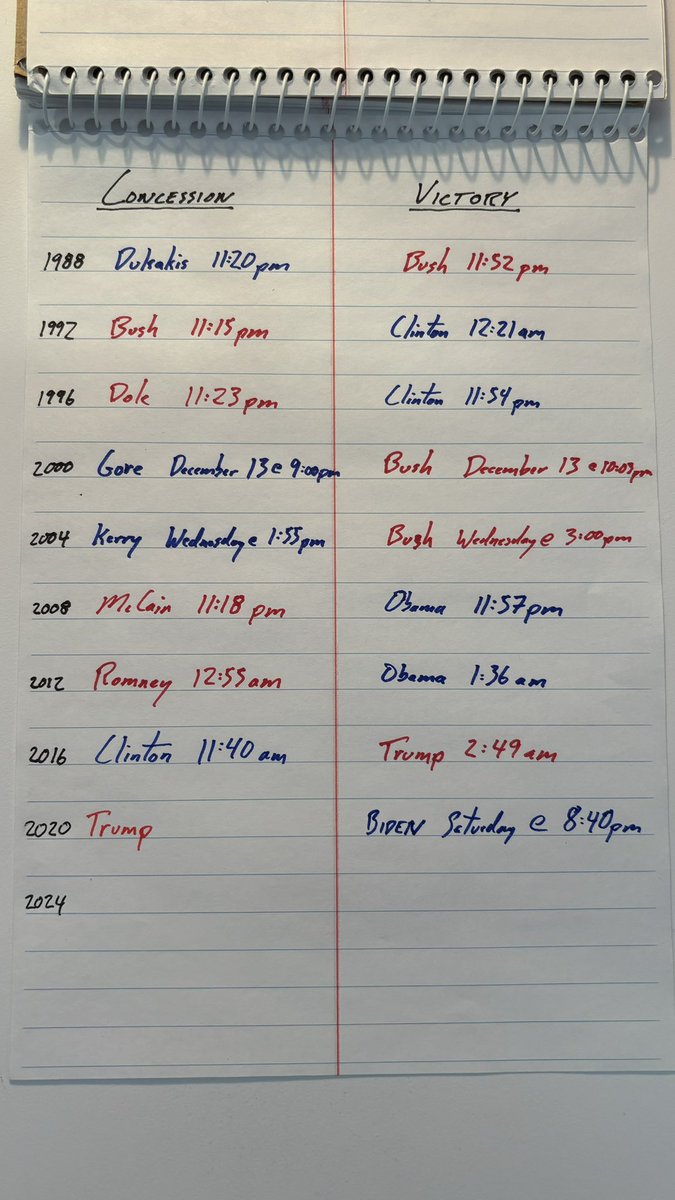 CONCESSION VICTORY
1988 Dukakis 11:20pm Bush 11:52pm
1992 Bush 11:15pm Clinton 12:21am
1996 Dole 11:23pm Clinton 11:54pm
2000 Gore December 13 @ 9:00pm Bush December 13 @ 10:03pm
2004 Kerry Wednesday @ 1:55pm Bush Wednesday @ 3:00pm
2008 McCain 11:18 pm Obama 11:57pm
2012 Romney 12:55am Obama 1:36 am
2016 Clinton 11:40 am Trump 2:49am
2020 Trump BIDEN Saturday @ 8:40pm
2024